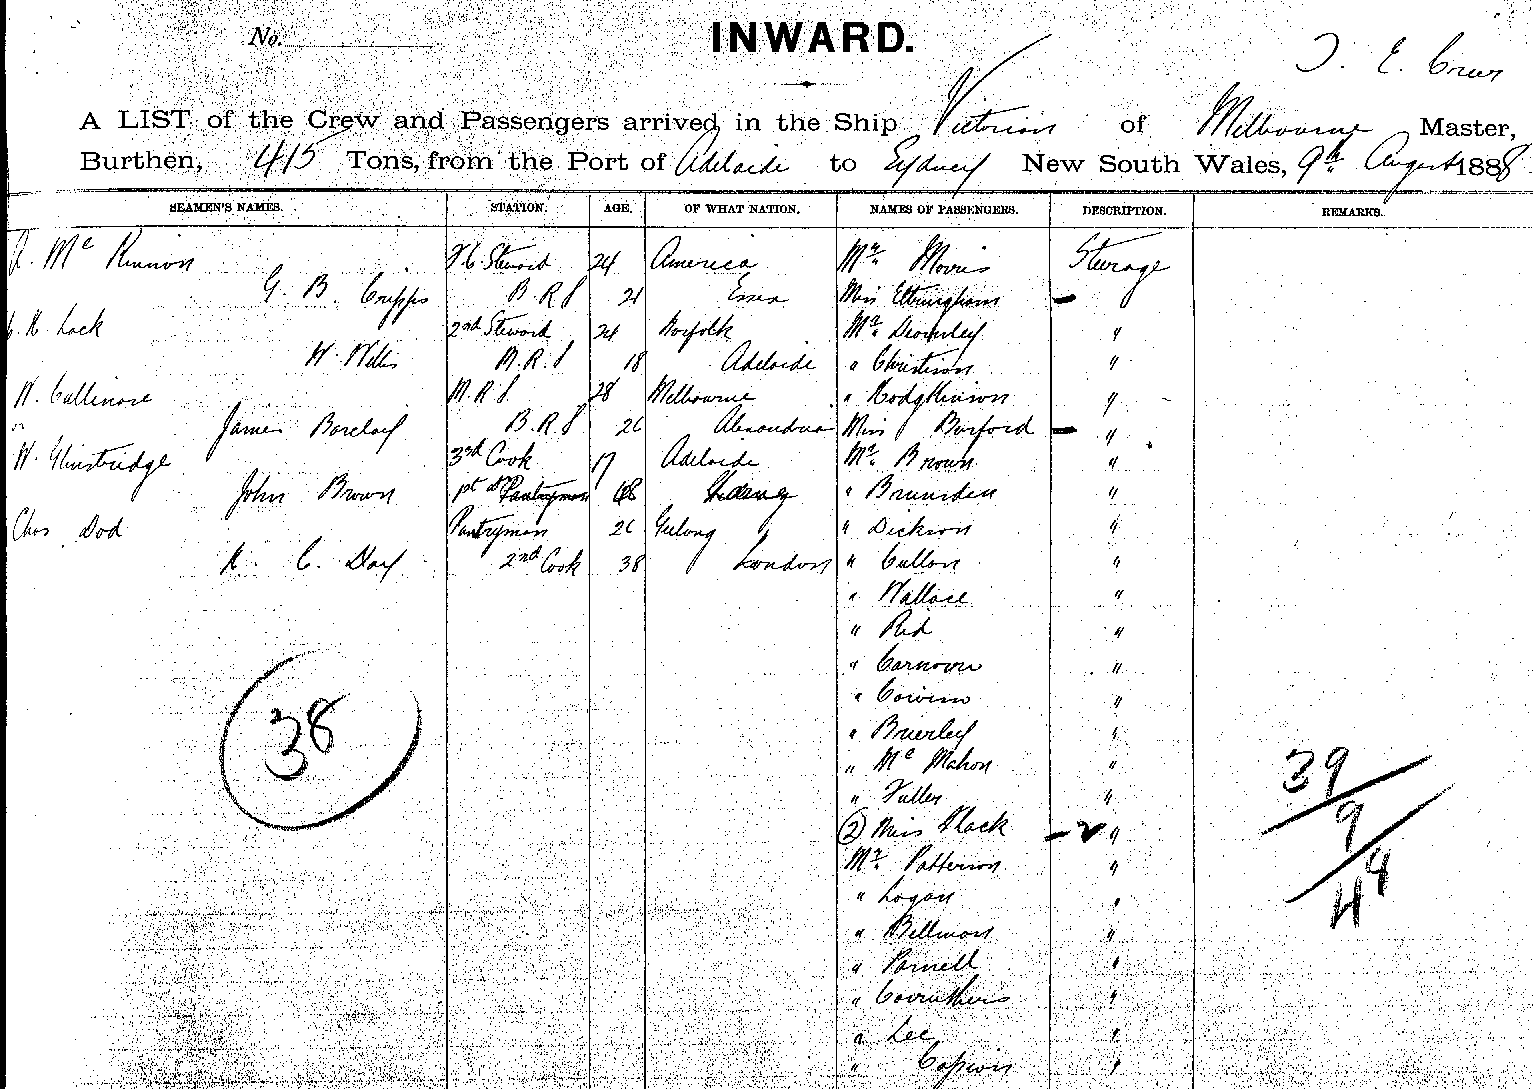 No.
INWARD.
T. E. Crews
A LIST of the Crew and Passengers arrived in the Ship Victorian of Melbourne Master,
Burthen, 415 Tons, from the Port of Adelaide to Sydney New South Wales, 9th August 1888
SEAMEN'S NAMES. STATION. AGE. OF WHAT NATION. NAMES OF PASSENGERS. DESCRIPTION. REMARKS.
Mc Kinnon F.C. Steward 24 America Mr. Morris Steerage
G. B. Cripps B.R.S 21 Essex Miss Ettingham "
Lock 2nd Steward 24 Norfolk Mr. "
W. Willis M.R.S 18 Adelaide " Christison "
W. Cullinore M.R.S. 28 Melbourne " Hodgkinson "
James Barclay B.R.S 26 Alexandria Miss Burford "
W. 3rd Cook 17 Adelaide Mr. Brown "
John Brown Pantryman " Brunsden "
Chas Dod Pantryman 26 Geelong " Dickson "
H. C. Day 2nd Cook 38 London " Cullon "
" Wallace "
" Reid "
" "
" "
" Brierley "
" Mc Mahon "
" Fuller "
(2) Miss Black - 2 "
Mr. Patterson "
" Logan "
" Bellman "
" Parnell "
" Carruthers "
" Lee "
" "
38
39
9
4 4